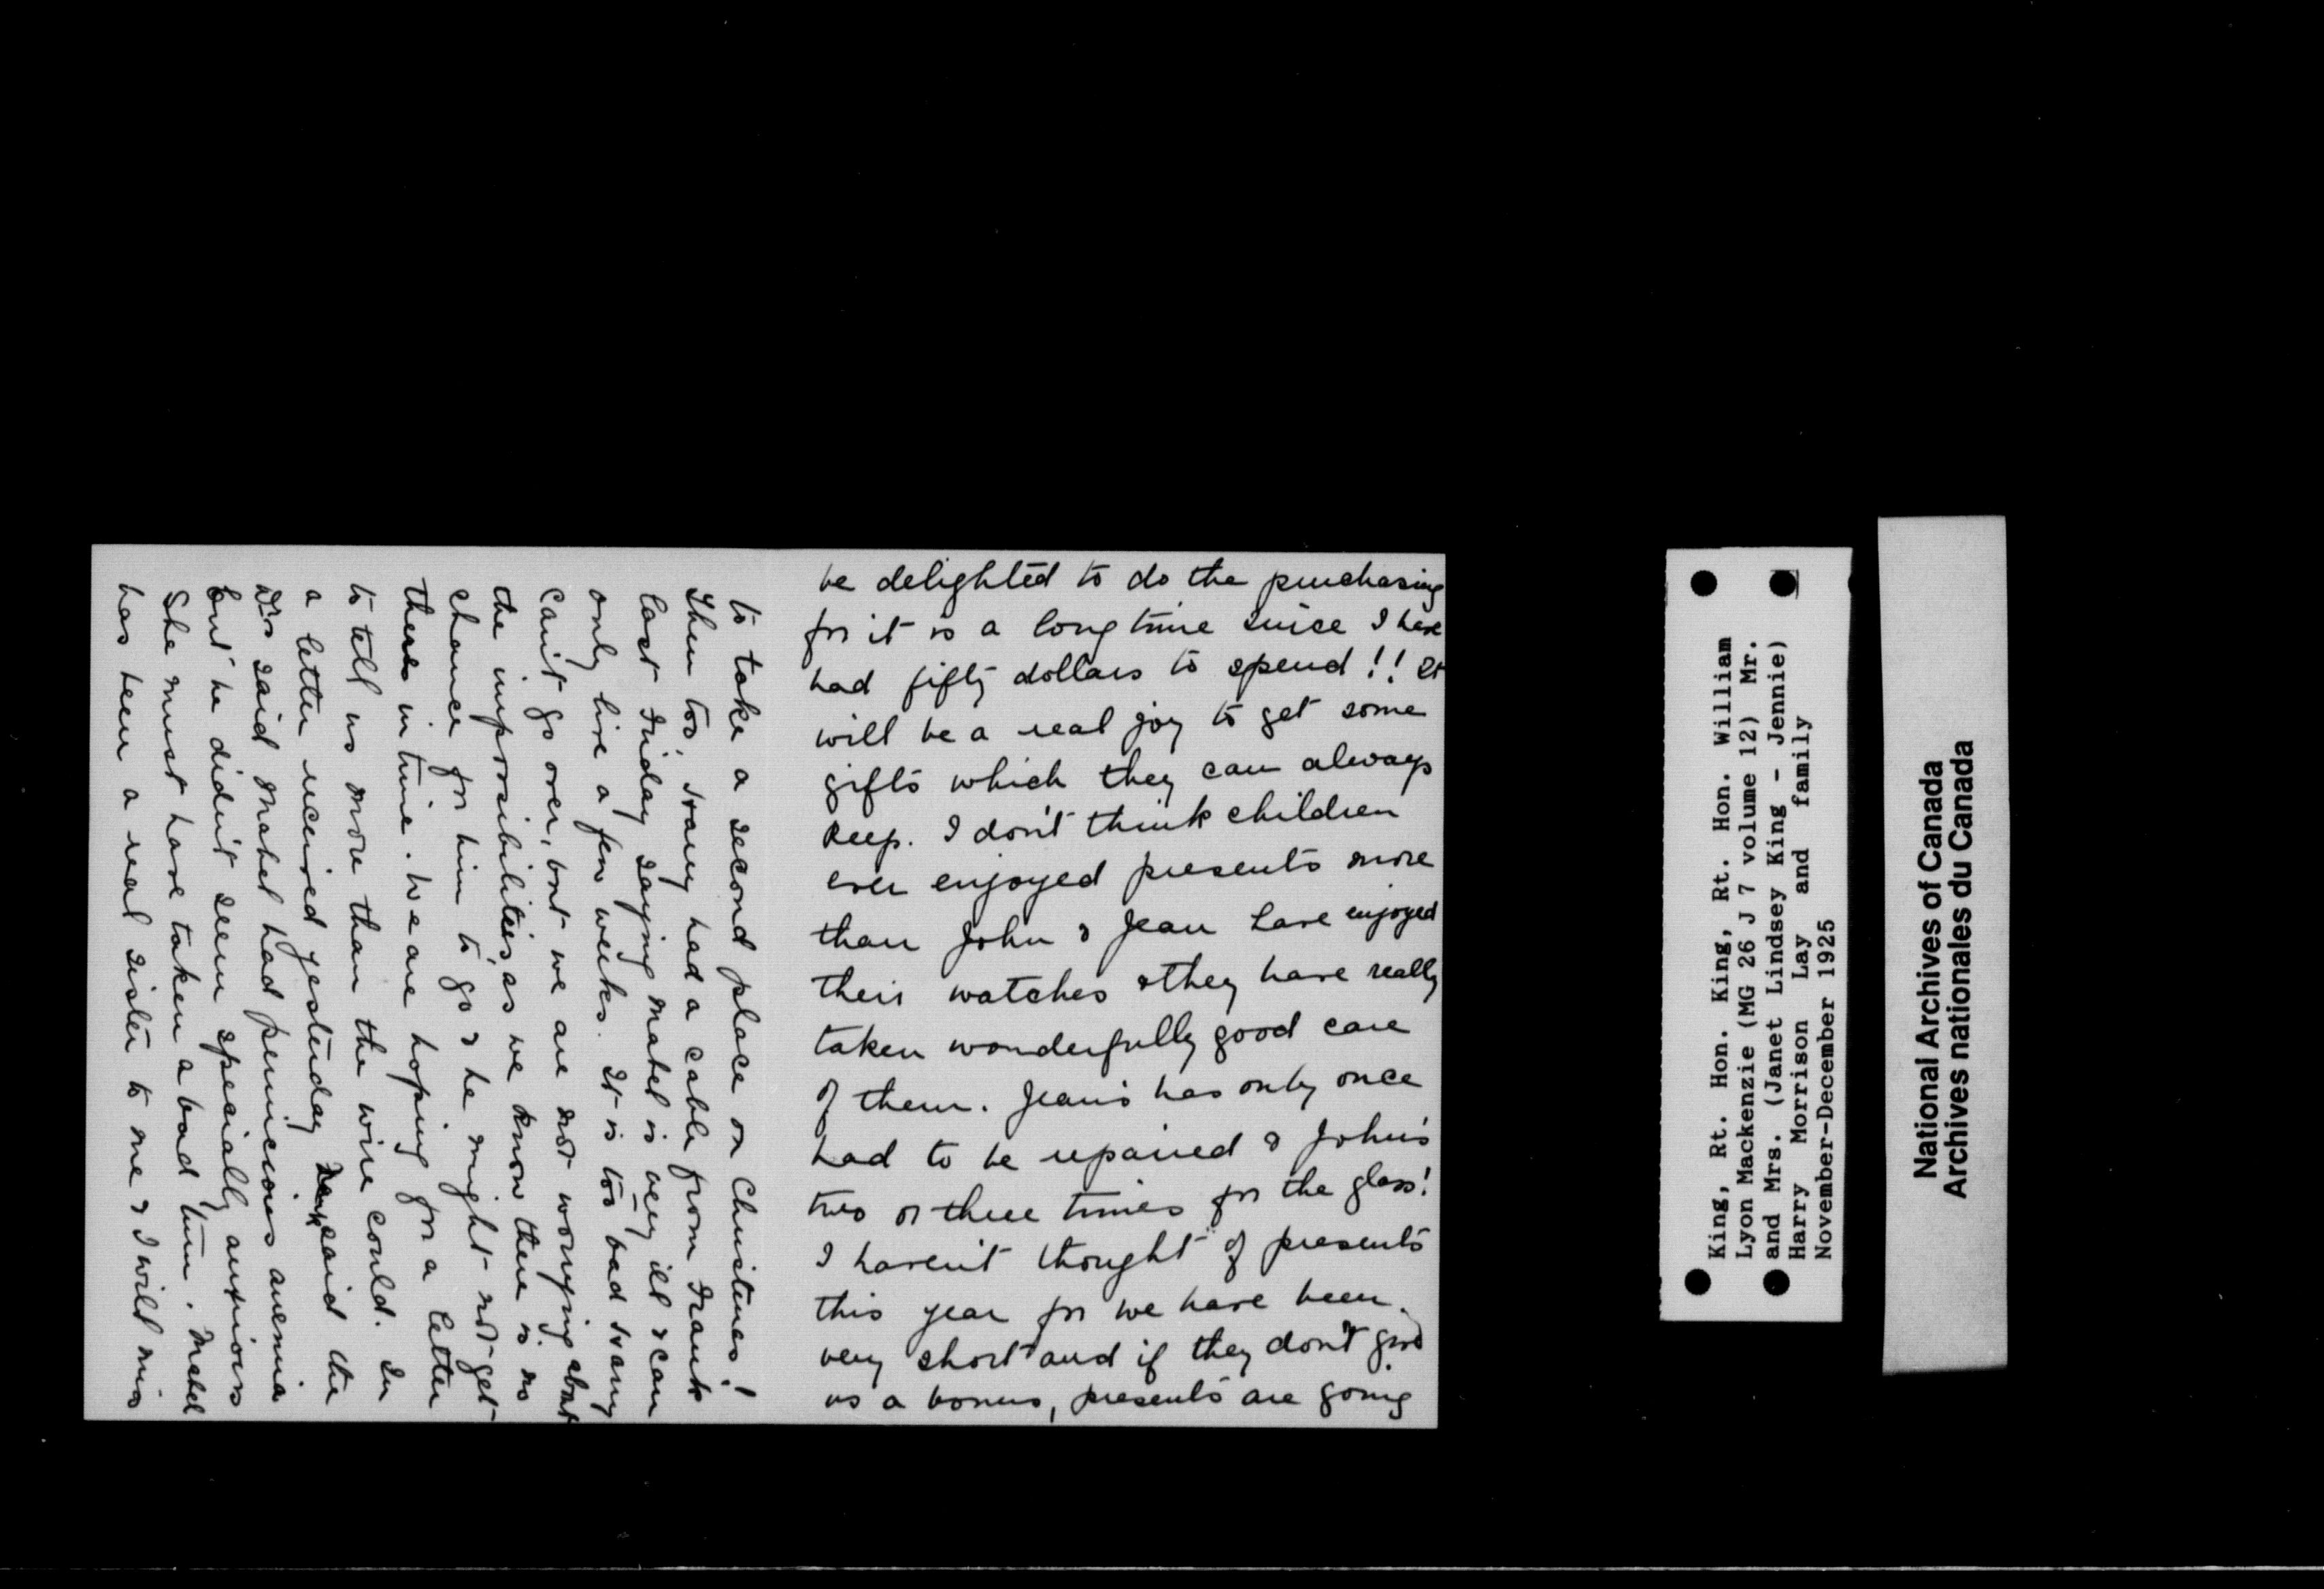 be delighted to do the purchasing
for it is a long time since I have
had fifty dollars to spend!! It
will be a real joy to get some
gifts which they can always
keep. I don't think children
ever enjoyed presents more
than John & Jean have enjoyed
their watches & they have really
taken wonderfully good care
of them. Jean's has only once
had to be repaired & John's
two or three times for the glass!
I haven't thought of presents
this year for we have been
very short and if they don't give
us a bonus, presents are going
to take a second place on Christmas!
Then too, Harry had a cable from Frank
last Friday saying Mabel is very ill & can
only live a few weeks. It is too bad Harry
can't go over, but we are not worrying about
the impossibilities, as we know there is no
chance for him to go & he might not get
there in time. We are hoping for a letter
to tell us more than the wire could. In
a letter received yesterday said the
Drs said Mabel had pernicious anemia
but he didn't seem specially anxious
She must have taken a bad turn. Mabel
has been a real sister to me & I will miss
King, Rt. Hon. King, Rt. Hon. William
Lyon Mackenzie (MG 26 J 7 volume 12) Mr.
and Mrs. (Janet Lindsey King - Jennie)
Harry Morrison Lay and family
November-December 1925
National Archives of Canada
Archives nationales du Canada